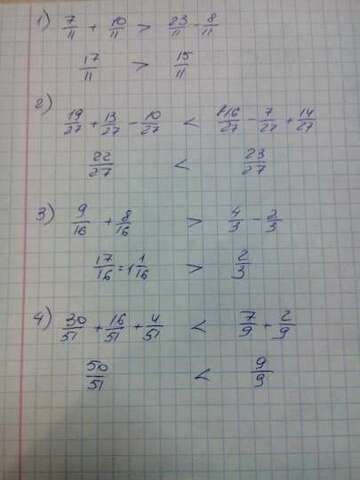 1) 7/11 + 10/11 > 23/11 - 8/11
17/11 > 15/11
2) 19/27 + 13/27 - 10/27 < 16/27 - 7/27 + 14/27
22/27 < 23/27
3) 9/16 + 8/16 > 4/3 - 2/3
17/16 = 1 1/16 > 2/3
4) 30/51 + 16/51 + 4/51 < 7/9 + 2/9
50/51 < 9/9